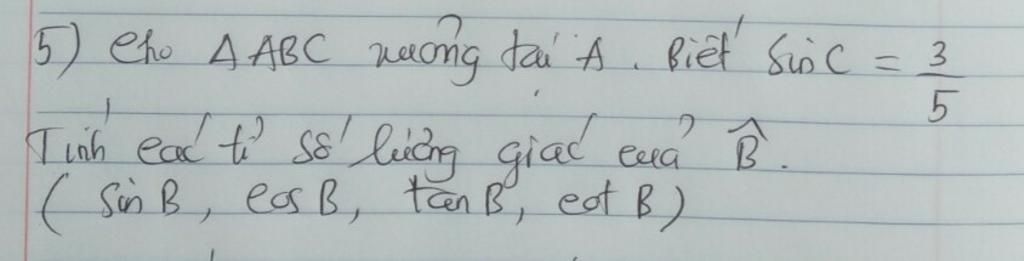 5) Cho Δ ABC vuông tại A. Biết Sin C = 3/5
Tính các tỉ số lượng giác của B̂.
( Sin B, cos B, tan B, cot B )